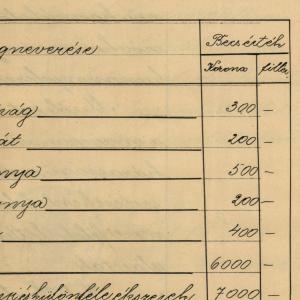 gnevezése Becsérték
Korona fillér
vág 300 –
át 200 –
nya 500 –
onya 200 –
400 –
6000 –
különféle ékszerek 7000 –